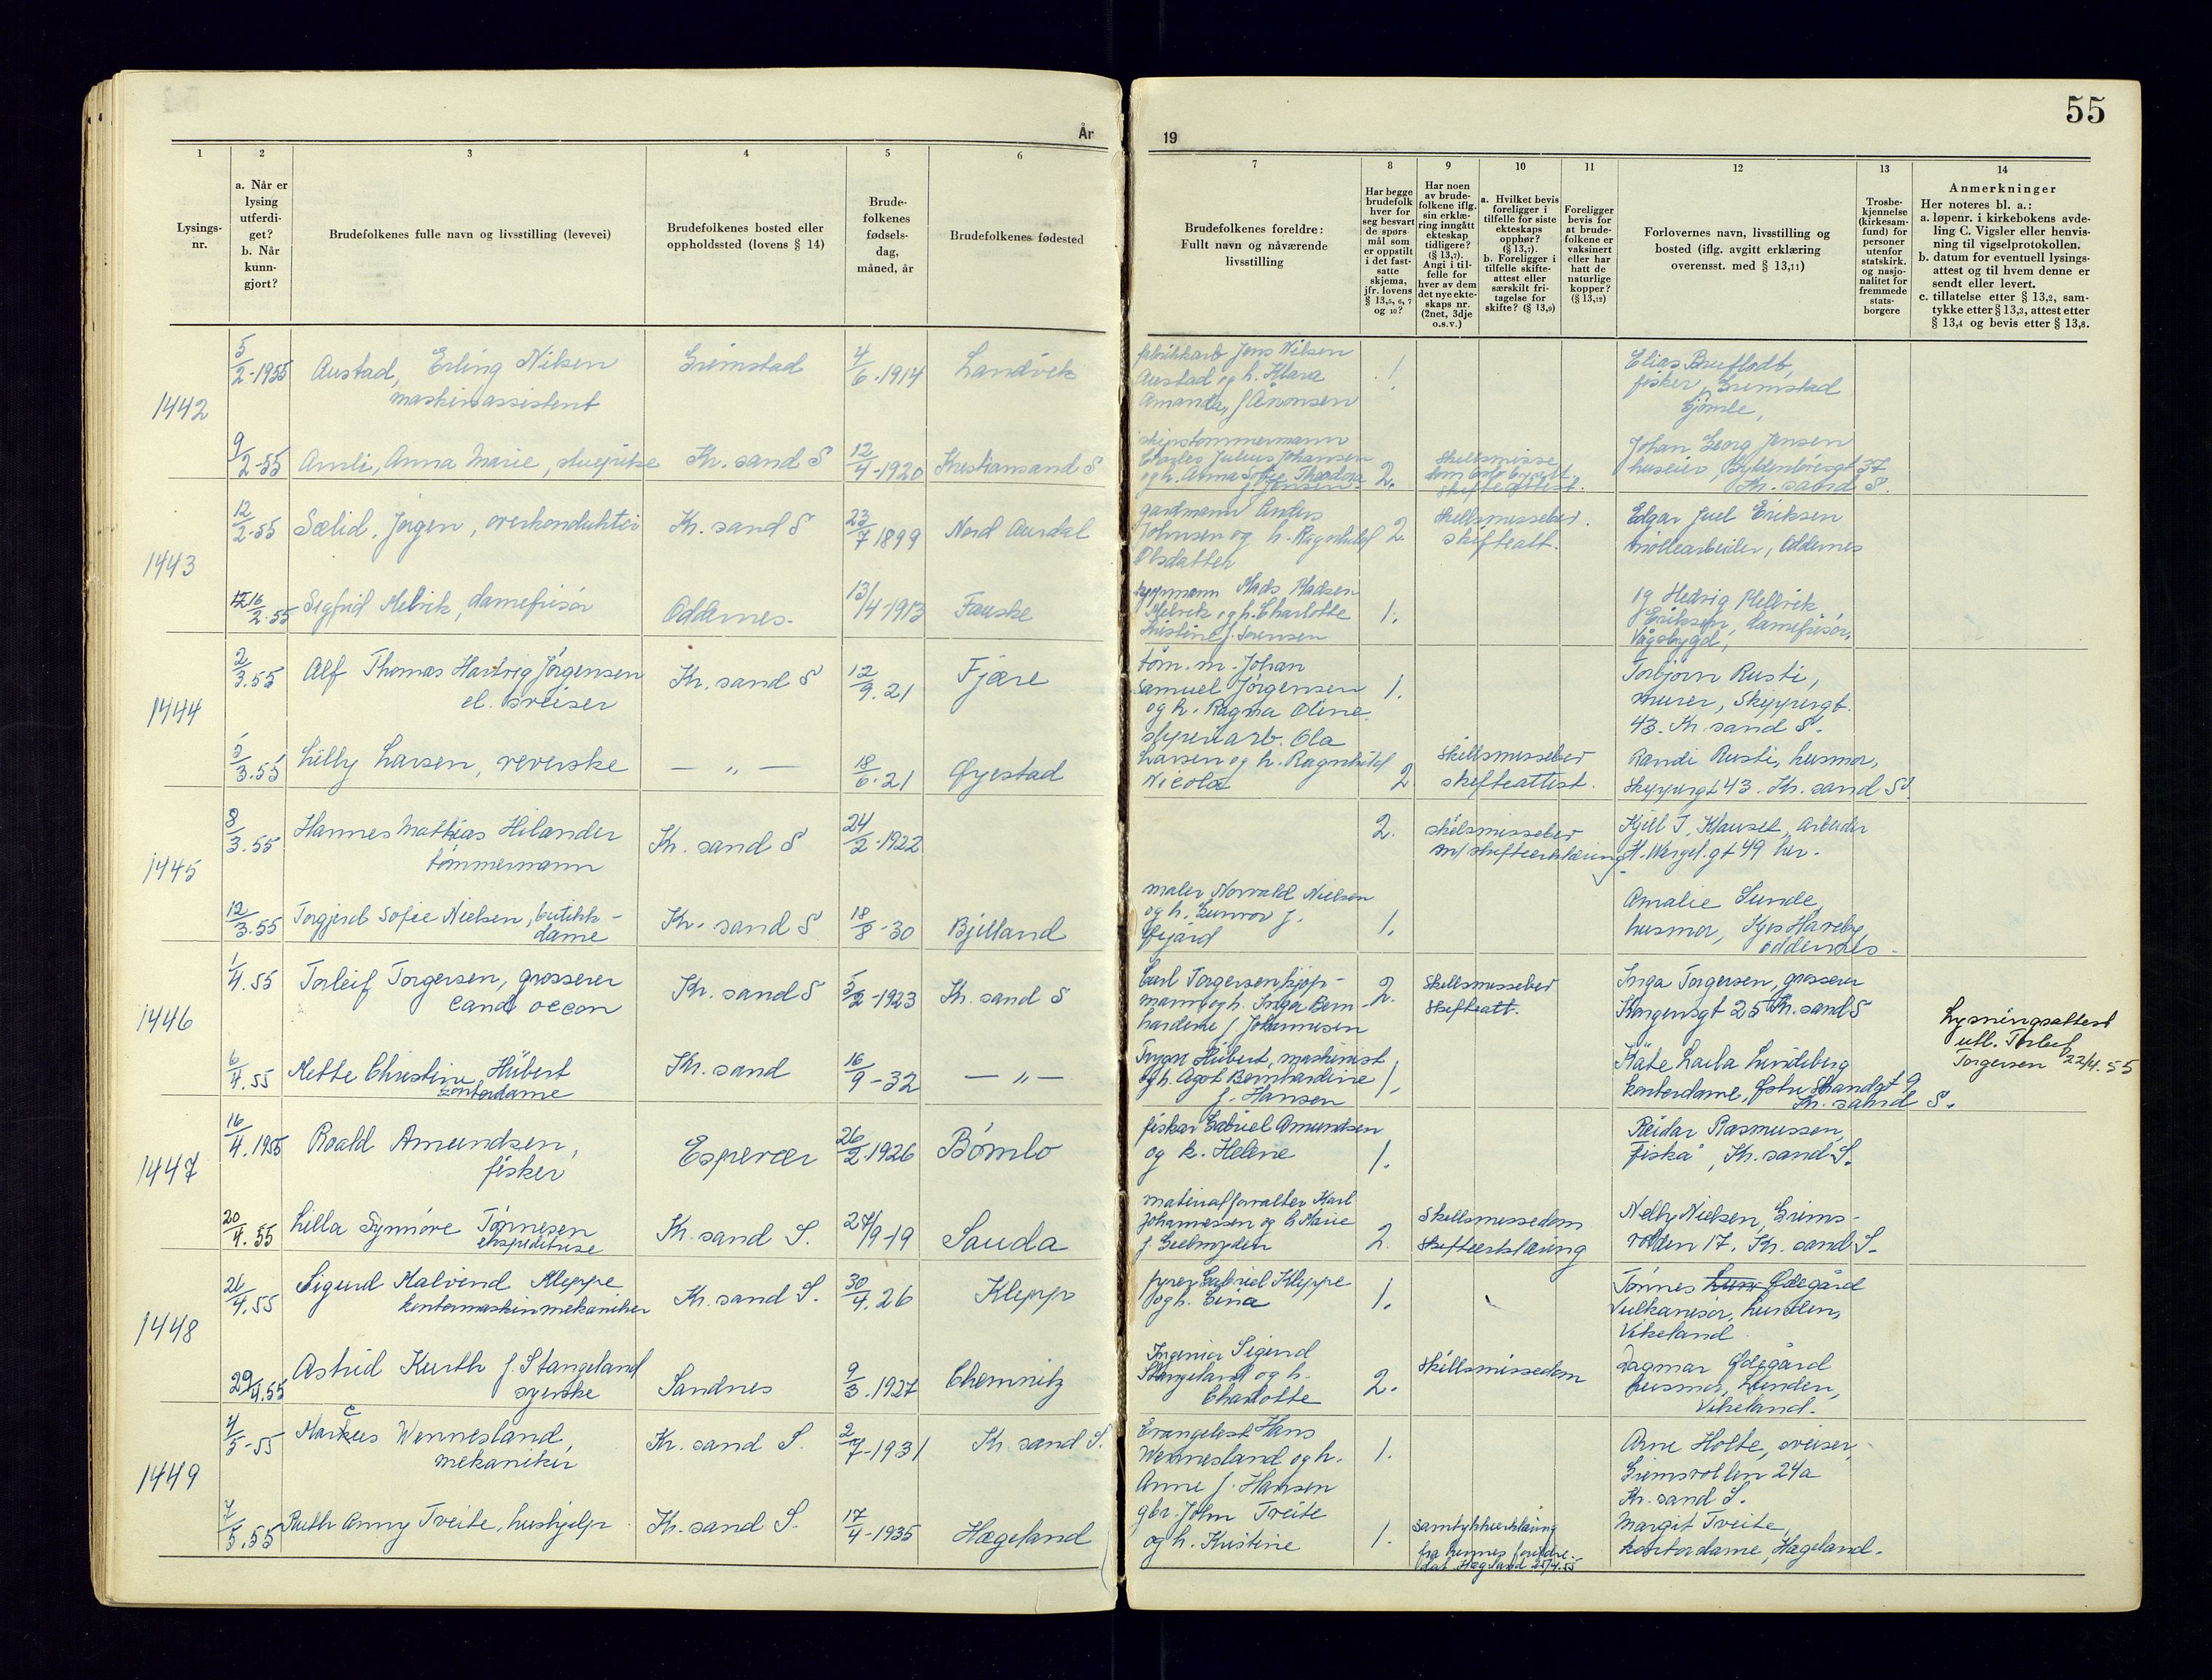 55
År
19
1
2
3
4
5
6
7
8
9
10
11
12
13
14
Lysings-
nr.
a. Når er
lysing
utferdi-
get?
b. Når
kunn-
gjort?
Brudefolkenes fulle navn og livsstilling (levevei)
Brudefolkenes bosted eller
oppholdssted (lovens § 14)
Brude-
folkenes
fødsels-
dag,
måned, år
Brudefolkenes fødested
Brudefolkenes foreldre:
Fullt navn og nåværende
livsstilling
Har begge
brudefolk
hver for
seg besvart
de spørs-
mål som
er oppstilt
i det fast-
satte
skjema,
jfr. lovens
§ 13,5, 6, 7
og 10?
Har noen
av brude-
folkene iflg.
sin erklæ-
ring inngått
ekteskap
tidligere?
(§ 13,7).
Angi i til-
felle for
hver av dem
det nye ekte-
skaps nr.
(2net, 3dje
o.s.v.)
a. Hvilket bevis
foreligger i
tilfelle for siste
ekteskaps
opphør?
(§ 13,7).
b. Foreligger i
tilfelle skifte-
attest eller
særskilt fri-
tagelse for
skifte? (§ 13,9)
Foreligger
bevis for
at brude-
folkene er
vaksinert
eller har
hatt de
naturlige
kopper?
(§ 13,12)
Forlovernes navn, livsstilling og
bosted (iflg. avgitt erklæring
overensst. med § 13,11)
Trosbe-
kjennelse
(kirkesam-
fund) for
personer
utenfor
statskirk.
og nasjo-
nalitet for
fremmede
stats-
borgere
Anmerkninger
Her noteres bl. a.:
a. løpenr. i kirkebokens avde-
ling C. Vigsler eller henvis-
ning til vigselprotokollen.
b. datum for eventuell lysings-
attest og til hvem denne er
sendt eller levert.
c. tillatelse etter § 13,2, sam-
tykke etter § 13,3, attest etter
§ 13,4 og bevis etter § 13,8.
1442
5/2-1955 Austad, Erling Nilsen
maskinassistent
Grimstad
4/6-1914
Landvik
fabrikkarb Jens Nilsen
Austad og h. Klara
Amanda, f Aanonsen
1
Elias
fisker, Grimstad
9/2-55 Amli, Anna Marie,
Kr. sand S
12/4-1920
Kristiansand S
skipstømmermann
Charles Julius Johansen
og h. Anna Sofie Theodora
f. Jensen
2.
skifteattest.
Johan Georg Jensen
huseier, Gyldenløvesgt 37
Kr. sand S.
1443
12/2-55 Sælid, Jørgen, overkonduktør
Kr. sand S
23/7 1899
Nord Aurdal
gardmann Anders
Johnsen og h. Ragnhild
Olsdatter
2.
skillsmissebev.
skifteatt.
Edgar Juel Eriksen
møllearbeider, Oddernes
16/2-55 Sigfrid Melvik, damefrisør
Oddernes.
13/4-1913
Fauske
Mads Madsen
Melvik og h. Charlotte
Kristine f. Sørensen
1.
og Hedvig Mellvik
f Eriksen, damefrisør,
Vågsbygd,
1444
2/3.55 Alf Thomas Hartvig Jørgensen
el. sveiser
Kr. sand S
12/9.21
Fjære
tøm.m. Johan
Samuel Jørgensen
og h. Ragna Oline
1.
Torbjørn Rusti,
murer, Skippergt.
43. Kr sand S.
5/3.55 Lilly Larsen, veverske
— „ —
18/6.21
Øyestad
slipenarb. Ola
Larsen og h. Ragnhild
Nicola
2
skillsmissebev
skifteattest.
Randi Rusti, husmor,
Skippergt 43. Kr. sand S.
1445
8/3.55 Hannes Mathias Hilander
tømmermann
Kr. sand S
24/2-1922
2.
skilsmissebev
m/ skifteerklæring
Kjell T. Klauset, arbeider
H. Wergel.gt 49 her.
12/3.55 Torgjerd Sofie Nielsen, butikk-
dame
Kr. sand S
18/8-30
Bjelland
maler Norvald Nielsen
og h. Gunvor f.
Øygard
1.
Amalie Sunde,
husmor,
Oddernes.
1446
1/4.55 Torleif Torgersen, grosserer
cand oecon
Kr. sand S
5/2-1923
Kr. sand S
Carl Torgersen kjøp-
mann og h. Inga Bern
hardine f. Johannesen
2.
skillsmissebev
skifteatt.
Inga Torgersen, grosserer
Kongensgt 25 Kr. sand S
Lysningsattest
utl. Torleif
Torgersen 22/4.55
6/4.55 Mette Christine Hübert
kontordame
Kr. sand
16/9-32
— „ —
Trygve Hübert, maskinist
og h. Agot Bernhardine
f. Hansen
1.
Käte Laila Lindeberg
kontordame, Østre Strandgt 9
Kr. sand S.
1447
16/4.1955 Roald Amundsen,
fisker
Espevær
26/2-1926
Bømlo
fisker Gabriel Amundsen
og h. Helene
1.
Reidar Rasmussen,
Fiskå, Kr. sand S.
20/4.55 Lilla Synnøve Tønnesen
ekspeditrise
Kr. sand S.
27/9-19
Sauda
materialforvalter Karl
Johannessen og h Marie
f. Geelmyden
2.
skillsmissedom
skifteerklæring
Nelly Nielsen, Grims-
vollen 17, Kr. sand S.
1448
26/4.55 Sigurd Malvind Kleppe
kontormaskinmekaniker
Kr. sand S.
30/4.26
Klepp
fyrer Gabriel Kleppe
og h. Gina
1.
Tønnes Ødegård
vulkanisør, Lunden,
Vikeland
29/4.55 Astrid Kurth f. Stangeland
syerske
Sandnes
9/3.1927
Chemnitz
Ingeniør Sigurd
Stangeland og h.
Charlotte
2.
skillsmissedom
Dagmar Ødegård
husmor, Lunden,
Vikeland.
1449
4/5-55 Markus Wennesland,
mekaniker
Kr. sand S.
2/7-1931
Kr. sand S.
Evangelist Hans
Wennesland og h.
Anne f. Hansen
1.
Arne Holte, sveiser,
Grimsvollen 24a
Kr. sand S.
7/5.55 Ruth Anny Tveite, hushjelp
Kr. sand S.
17/4-1935
Hægeland
gbr. John Tveite
og h. Kristine
1.
samtykkeerklæring
fra hennes foreldre.
dat. Hægeland
Margit Tveite,
kontordame, Hægeland.